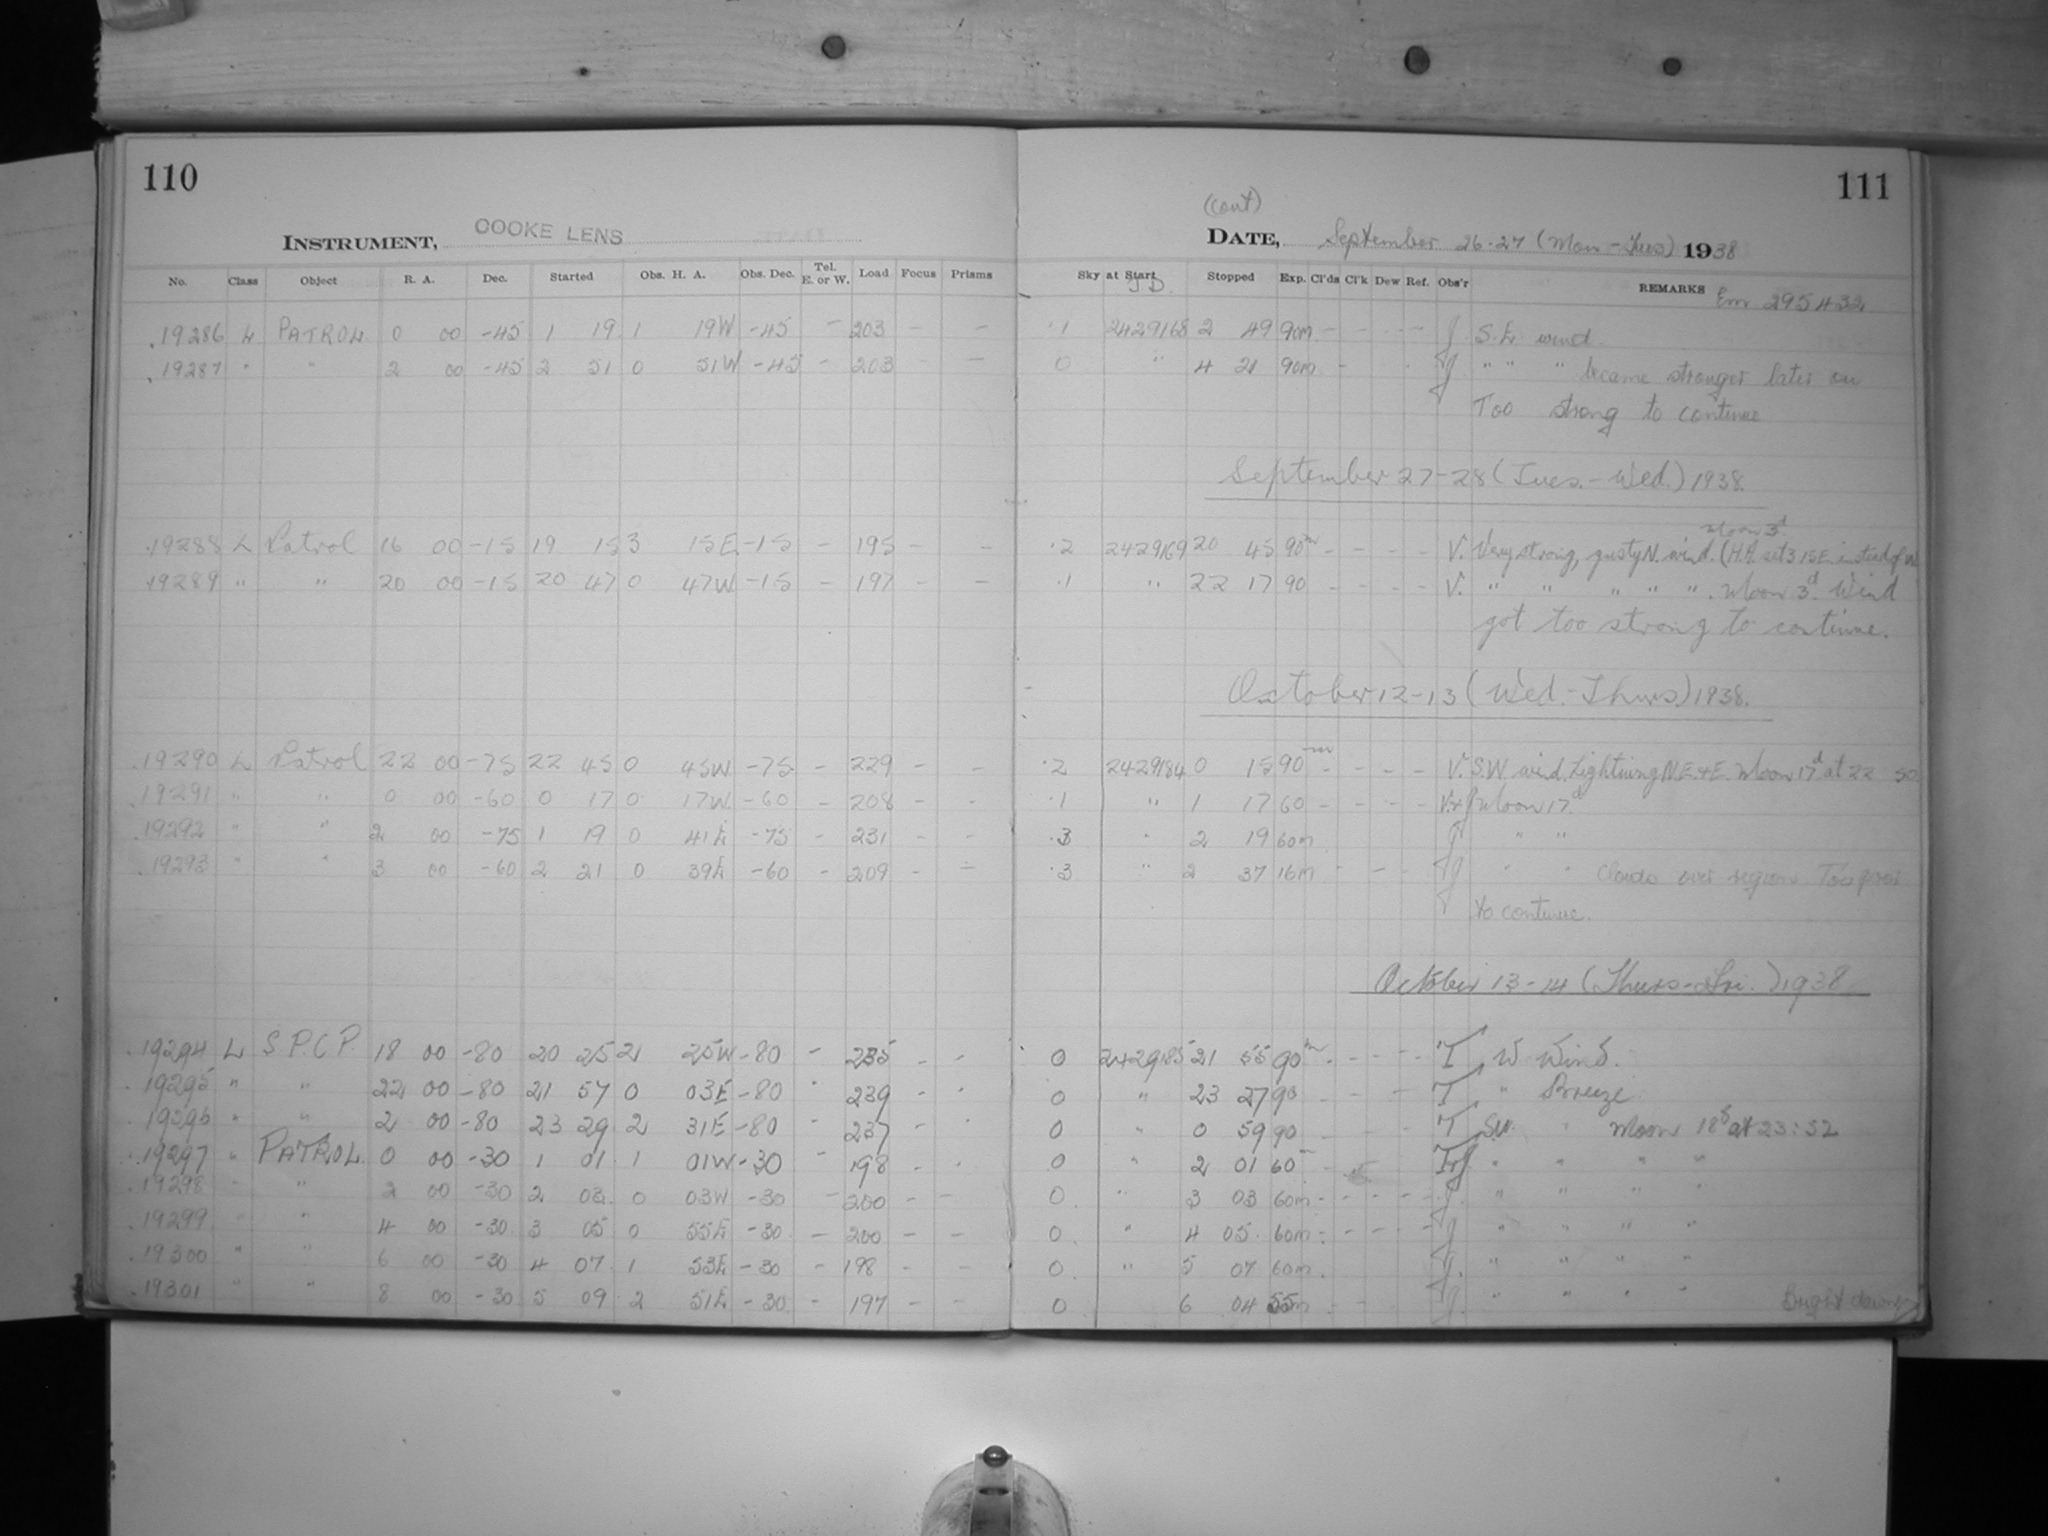 110
111
INSTRUMENT, COOKE LENS
(cont)
DATE, September 26-27 (Mon-Tues) 1938
No. Class Object R. A. Dec. Started Obs. H. A. Obs. Dec. Tel. E. or W. Load Focus Prisms Sky at Start J D. Stopped Exp. Cl'ds Cl'k Dew Ref. Obs'r REMARKS
295432
19286 L PATROL 0 00 -45 1 19 1 19W -45 - 203 - - .1 2429168 2 49 90m - - - - J S.E. wind
19287 " " 2 00 -45 2 51 0 51W -45 - 203 - - 0 " 4 21 90m - J " " " became stronger later on
Too strong to continue
September 27-28 (Tues.-Wed.) 1938.
Moon 3d
19288 L Patrol 16 00 -15 19 15 3 15E -15 - 195 - - .2 2429169 20 45 90m - - - - V. Very strong, gusty N. wind. (H.A. set 3 15E. instead of W
19289 " " 20 00 -15 20 47 0 47W -15 - 197 - - .1 " 22 17 90 - - - - V. " " " " ". Moon 3d. Wind
got too strong to continue.
October 12-13 (Wed.-Thurs.) 1938.
19290 L Patrol 22 00 -75 22 45 0 45W -75 - 229 - - .2 2429184 0 15 90m - - - - V. S.W. wind. Lightning N.E. & E. Moon 17d at 22 50
19291 " " 0 00 -60 0 17 0 17W -60 - 208 - - .1 " 1 17 60 - - - - V.&J Moon 17d.
19292 " " 2 00 -75 1 19 0 41E -75 - 231 - - .3 " 2 19 60m J " "
19293 " " 3 00 -60 2 21 0 39E -60 - 209 - - .3 " 2 37 16m - - - J " " Clouds over region Too poor
to continue.
October 13-14 (Thurs-Fri.) 1938
19294 L S.P.C.P. 18 00 -80 20 25 2 25W -80 - 235 - - 0 2429185 21 55 90m - - - - T W Wind.
19295 " " 22 00 -80 21 57 0 03E -80 - 239 - - 0 " 23 27 90 - - - - T " Breeze.
19296 " " 2 00 -80 23 29 2 31E -80 - 237 - - 0 " 0 59 90 - - - - T SW. " Moon 18d at 23:52
19297 " PATROL 0 00 -30 1 01 1 01W -30 - 198 - - 0 " 2 01 60m - T&J " " " "
19298 " " 2 00 -30 2 03 0 03W -30 - 200 - - 0 " 3 03 60m - - - - J " " " "
19299 " " 4 00 -30 3 05 0 55E -30 - 200 - - 0 " 4 05 60m - - - - J " " " "
19300 " " 6 00 -30 4 07 1 53E -30 - 198 - - 0 " 5 07 60m J " " " "
19301 " " 8 00 -30 5 09 2 51E -30 - 197 - - 0 6 04 55m - - J " " " " Bright dawn